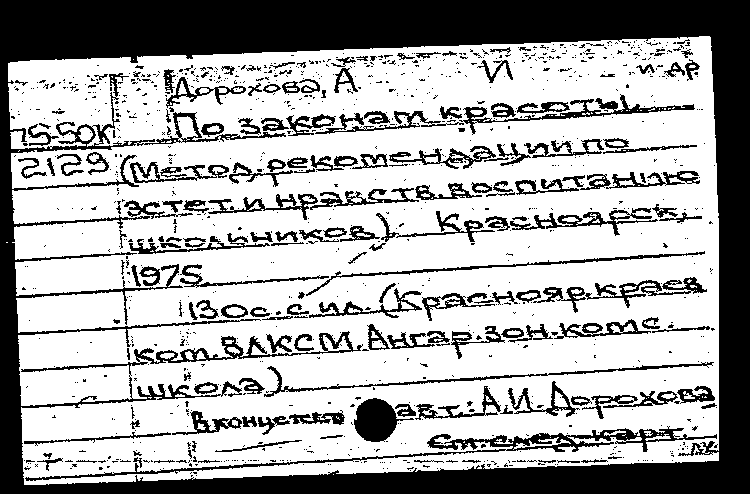 Дорохова, А И и др
75-50К По законам красоты.
2129 (Метод. рекомендации по
эстет. и нравств. воспитанию
школьников). Красноярск,
1975.
130с. с ил. (Краснояр. краев.
ком. ВЛКСМ. Ангар. зон. комс.
школа).
В конце авт.: А.И. Дорохова
См. след. карт.